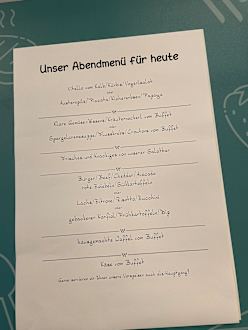 Unser Abendmenü für heute
Vitello vom Kalb/Kürbis/Vogerlsalat
oder
Austernpilz/Piccata/Kichererbsen/Papaya
Klare Gemüse/Essenz/Kräuterfrittaten vom Buffet
oder
Spargelcremesuppe/Blauschimmel/Croutons vom Buffet
Frisches und knackiges von unserer Salatbar
Burger/Beef/Cheddar/Avocado
rote Zwiebel/Süßkartoffeln
oder
Lachs/Zitrone/Risotto/Zucchini
oder
gebackener Karfiol/Frühkartoffeln/Dip
hausgemachte Waffel vom Buffet
Käse vom Buffet
Gerne servieren wir Ihnen unsere Vorspeisen auch als Hauptgang!